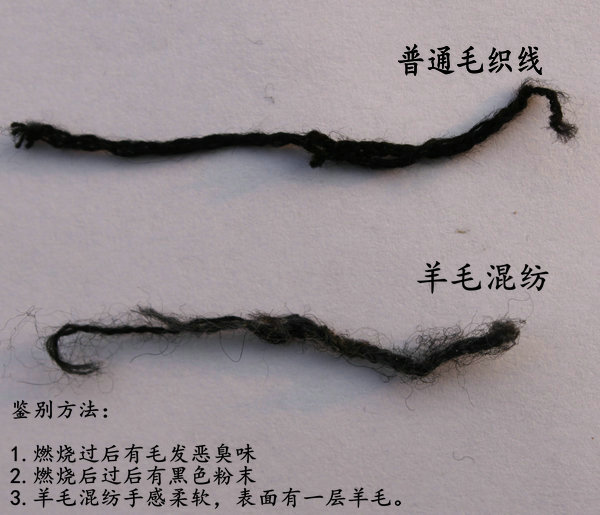 普通毛织线
羊毛混纺
鉴别方法：
1.燃烧过后有毛发恶臭味
2.燃烧后过后有黑色粉末
3.羊毛混纺手感柔软，表面有一层羊毛。